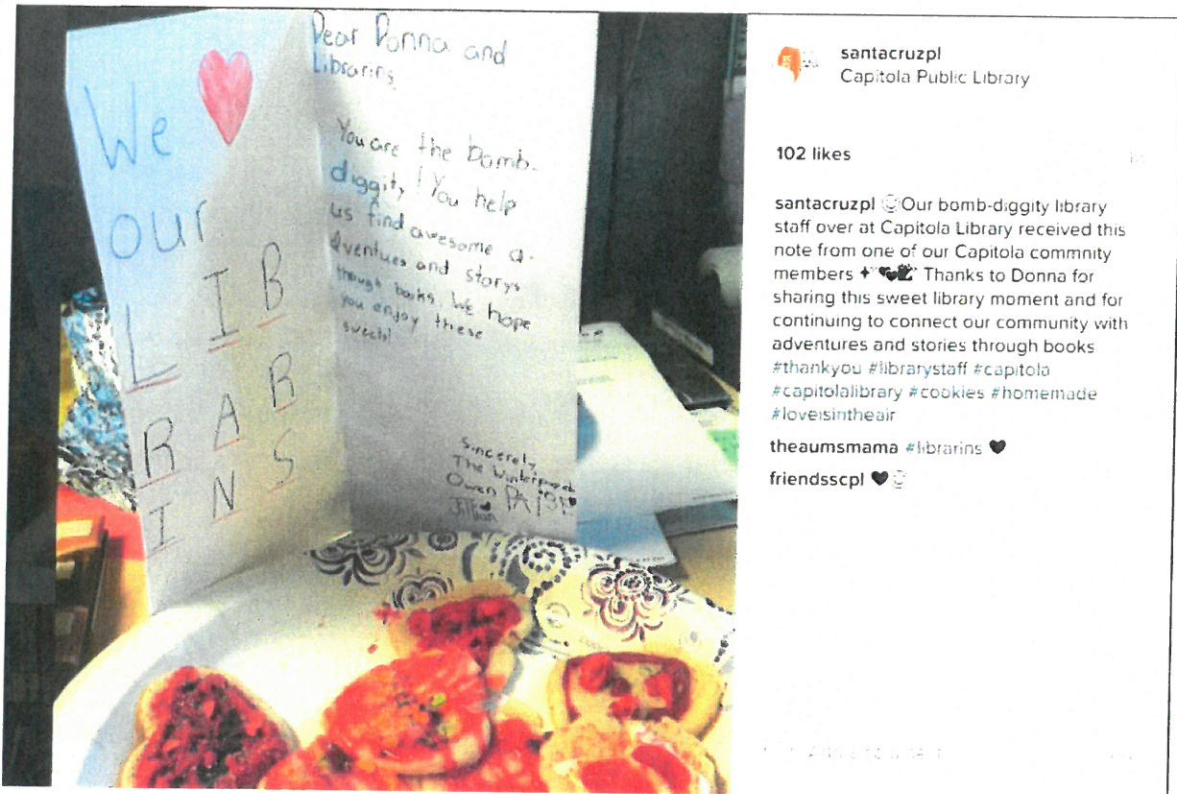 We ❤
our
L I B
R A R
I N S
Dear Donna and
Librarins,
You are the bomb-
diggity! You help
us find awesome a-
dventues and storys
though books. We hope
you enjoy these
sweets!
Sincerely,
The
Owen PAIGE
Jillian
santacruzpl
Capitola Public Library
102 likes
santacruzpl Our bomb-diggity library
staff over at Capitola Library received this
note from one of our Capitola commnity
members Thanks to Donna for
sharing this sweet library moment and for
continuing to connect our community with
adventures and stories through books
#thankyou #librarystaff #capitola
#capitolalibrary #cookies #homemade
#loveisintheair
theaumsmama #librarins ❤
friendsscpl ❤